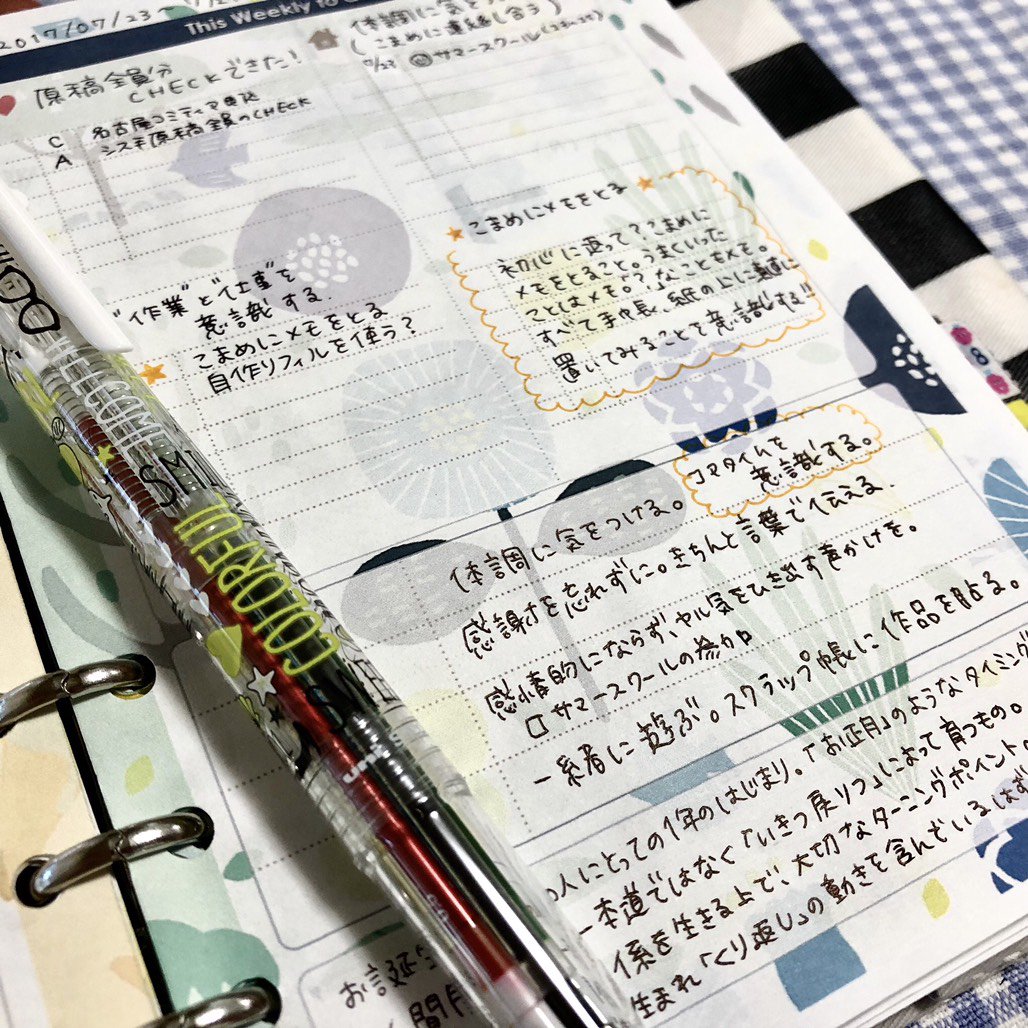 2017/07/23
This Weekly to
体調に気を
(こまめに連絡し合う)
サマースクール
原稿全員分
CHECKできた!
C 名古屋コミティア申込
A システ原稿全員のCHECK
"作業"と"仕事"を
意識する.
こまめにメモをとる
自作リフィルを使う?
こまめにメモをとる
初心に返って?こまめに
メモをとること。うまくいった
ことはメモ。?なこともメモ。
すべて手帳、紙の上に
置いてみることを意識する!!
コアタイムを
意識する。
体調に気をつける。
感謝を忘れずに。きちんと言葉で伝える.
感情的にならず、ヤル気をひき出す声かけを。
□ サマースクールの参加
一緒に遊ぶ。スクラップ帳に作品を貼る。
人にとっての1年のはじまり。「お正月」のようなタイミング
一本道ではなく「いきつ戻りつ」によって育つもの。
係を生きる上で、大切なターニングポイント
生まれ「くり返し」の動きを含んでいるはず
お誕生
間
WELCOME
HOME
SMI
COLORFUL
uni